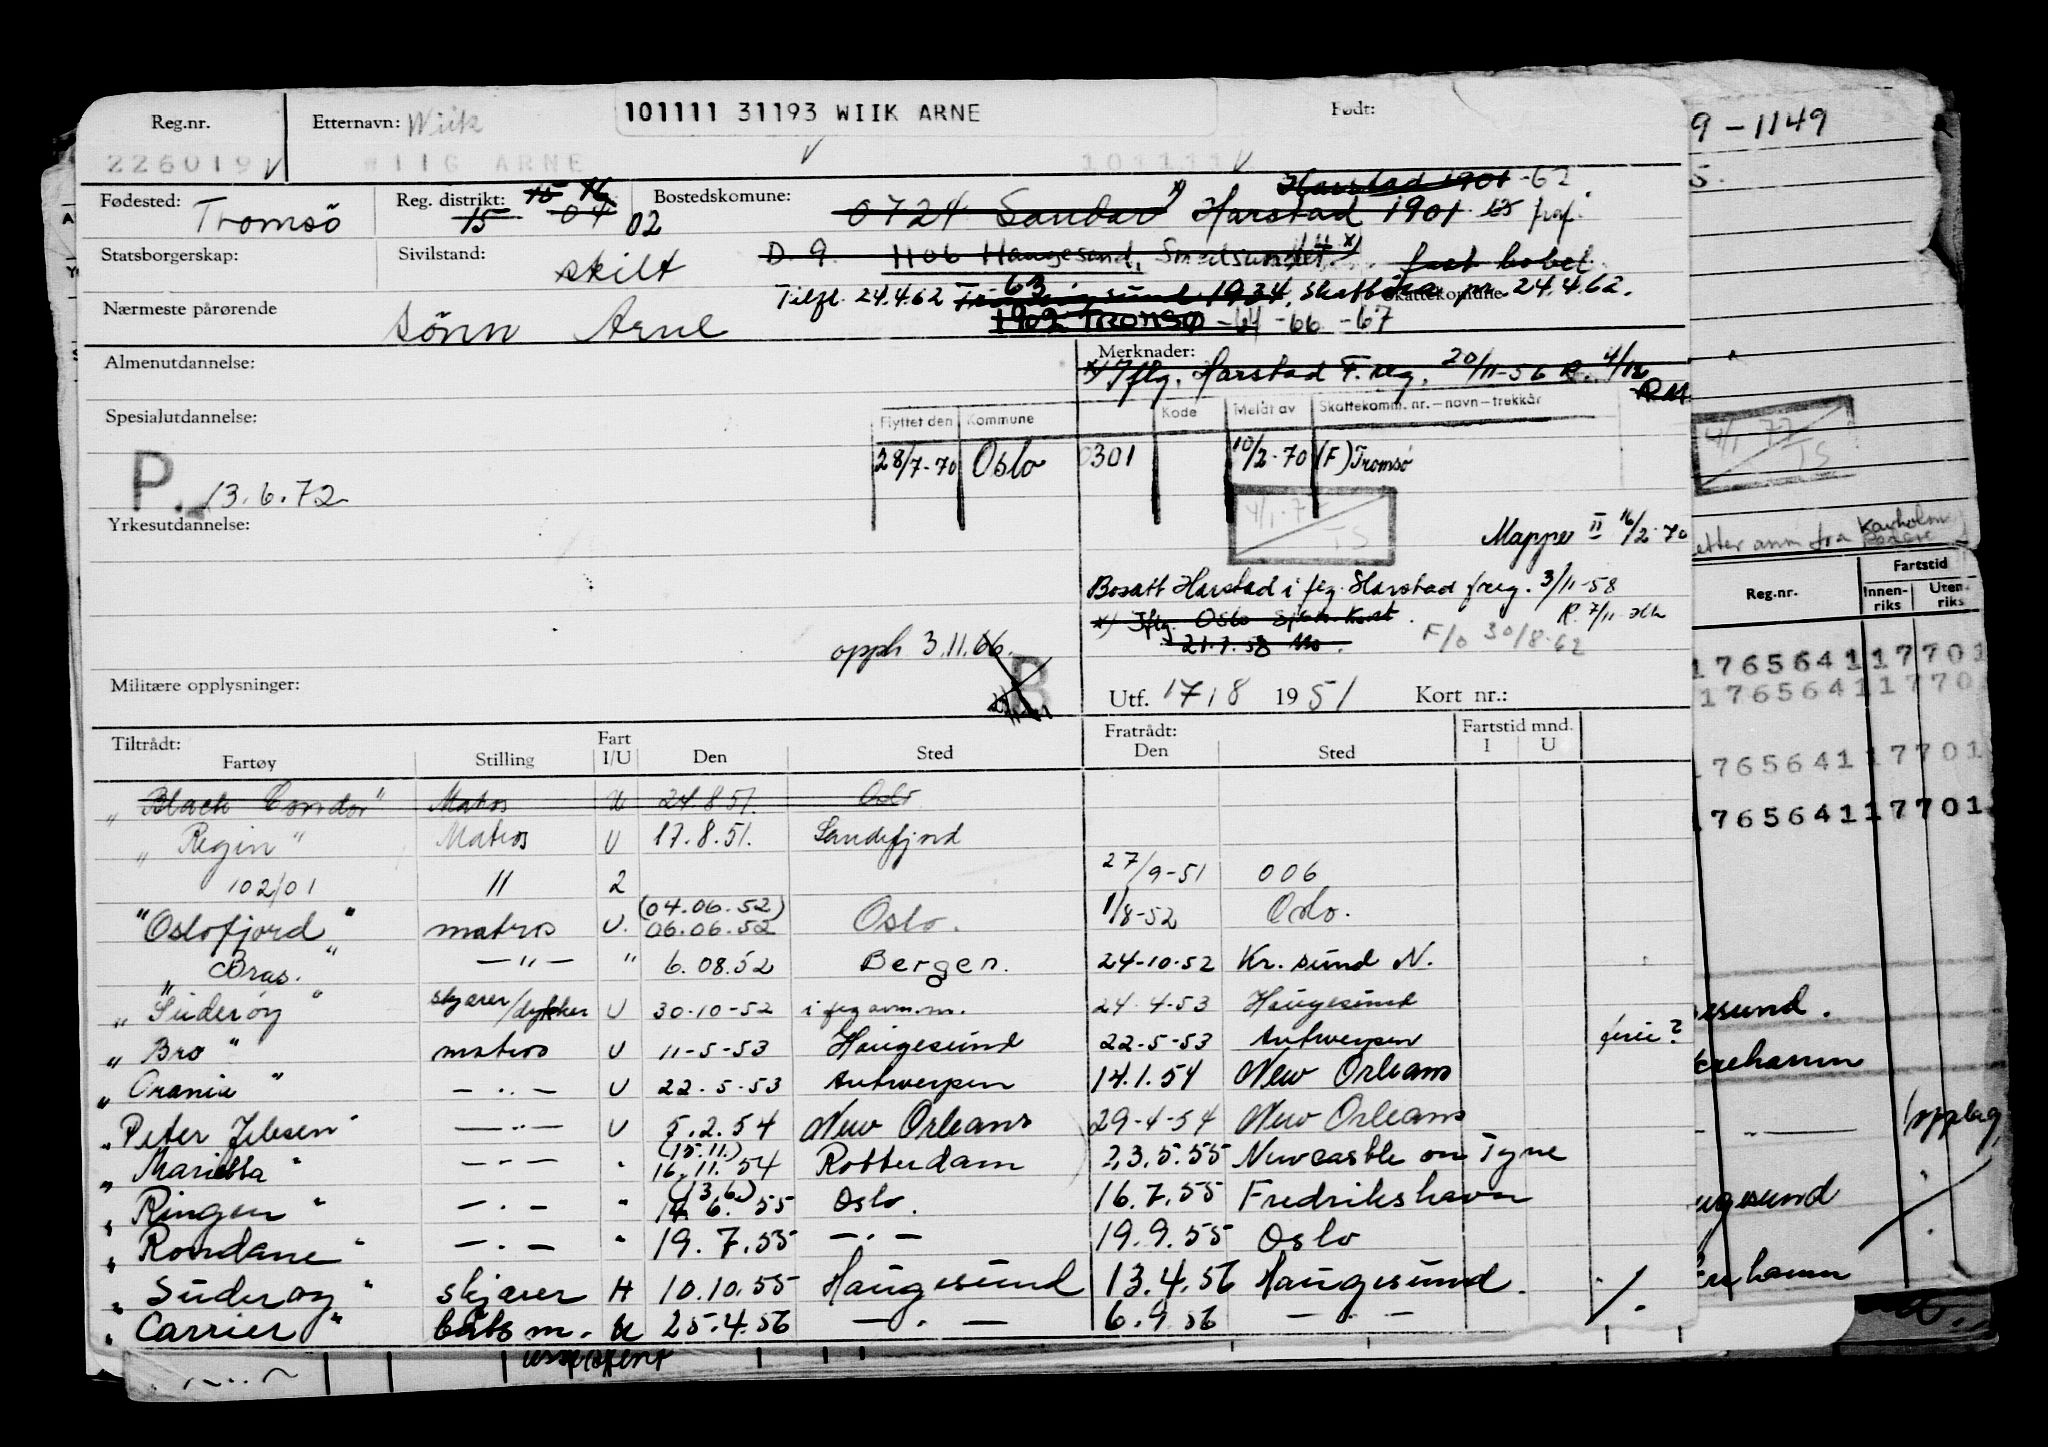 Reg.nr. Etternavn: Wiik 101111 31193 WIIK ARNE Født:
226019 V WIIG ARNE 101111 V
Fødested: Tromsö Reg. distrikt: 15 16 15 04 02 Bostedskomune: 0724 Sandar Harstad 1901 -62
Harstad 1901
Statsborgerskap: Sivilstand: skilt D. 9. 1106 Haugesund, Smedsundet
Tilfl. 24.4.62 63 1934, Skattekomune pr. 24.4.62.
Nærmeste pårørende Sönn Arne 1902 TROMSØ -64 -66 -67
Almenutdannelse: Merknader:
x) Iflg. Harstad F. reg. 20/11-56 R. 4/12
RM
Spesialutdannelse: Flyttet den Kommune Kode Meldt av Skattekomm. nr. - navn - trekkår
28/7-70 Oslo 0301 10/2-70 (F) Tromsø
P. 13.6.72
4/1-77 TS
Yrkesutdannelse: Mappe II 16/2-70
Bosatt Harstad i flg. Harstad freg. 3/11-58
R. 7/11
x) Iflg. Oslo
21.7.58 F/o 30/8-62
opph 3.11.66.
B
Militære opplysninger: Utf. 17/8 1951 Kort nr.:
Tiltrådt: Fratrådt: Fartstid mnd.
Fartøy Stilling Fart I/U Den Sted Den Sted I U
"Black Condor" Matros U 24.8.51. Oslo
"Regin" Matros U 17.8.51. Sandefjord
102/01 11 2 27/9-51 006
"Oslofjord" matros U. (04.06.52) 06.06.52 Oslo. 1/8-52 Oslo.
"Bras." —"— " 6.08.52 Bergen. 24-10-52 Kr.sund N.
"Suderøy" skjærer/dykker U 30-10-52 i flg avm.m. 24-4-53 Haugesund
"Bro" matros U 11-5-53 Haugesund 22-5-53 Antwerpen ferie?
"Crania" —"— U 22.5.53 Antwerpen 14.1.54 New Orleans
"Peter Jebsen" —"— U 5.2.54 New Orleans 29-4-54 New Orleans
"Marietta" —"— " (15.11.) 16.11.54 Rotterdam 23.5.55 Newcastle on Tyne
"Ringen" —"— " (13.6.) 14.6.55 Oslo. 16.7.55 Fredrikshavn
"Rondane" —"— " 19.7.55 —"— 19.9.55 Oslo
"Suderøy" skjærer H 10.10.55 Haugesund 13.4.56 Haugesund.
"Carrier" båtsm. U 25.4.56 —"— 6.9.56 —"—
9-1149
S.
4/1 77
TS
etter anm fra
Reg.nr. Fartstid
Innen-riks Uten-riks
17656411770 1
17656411770
7656411770 1
7656411770 1
esund.
rehamn
(opplag)
ugesund
rehamn